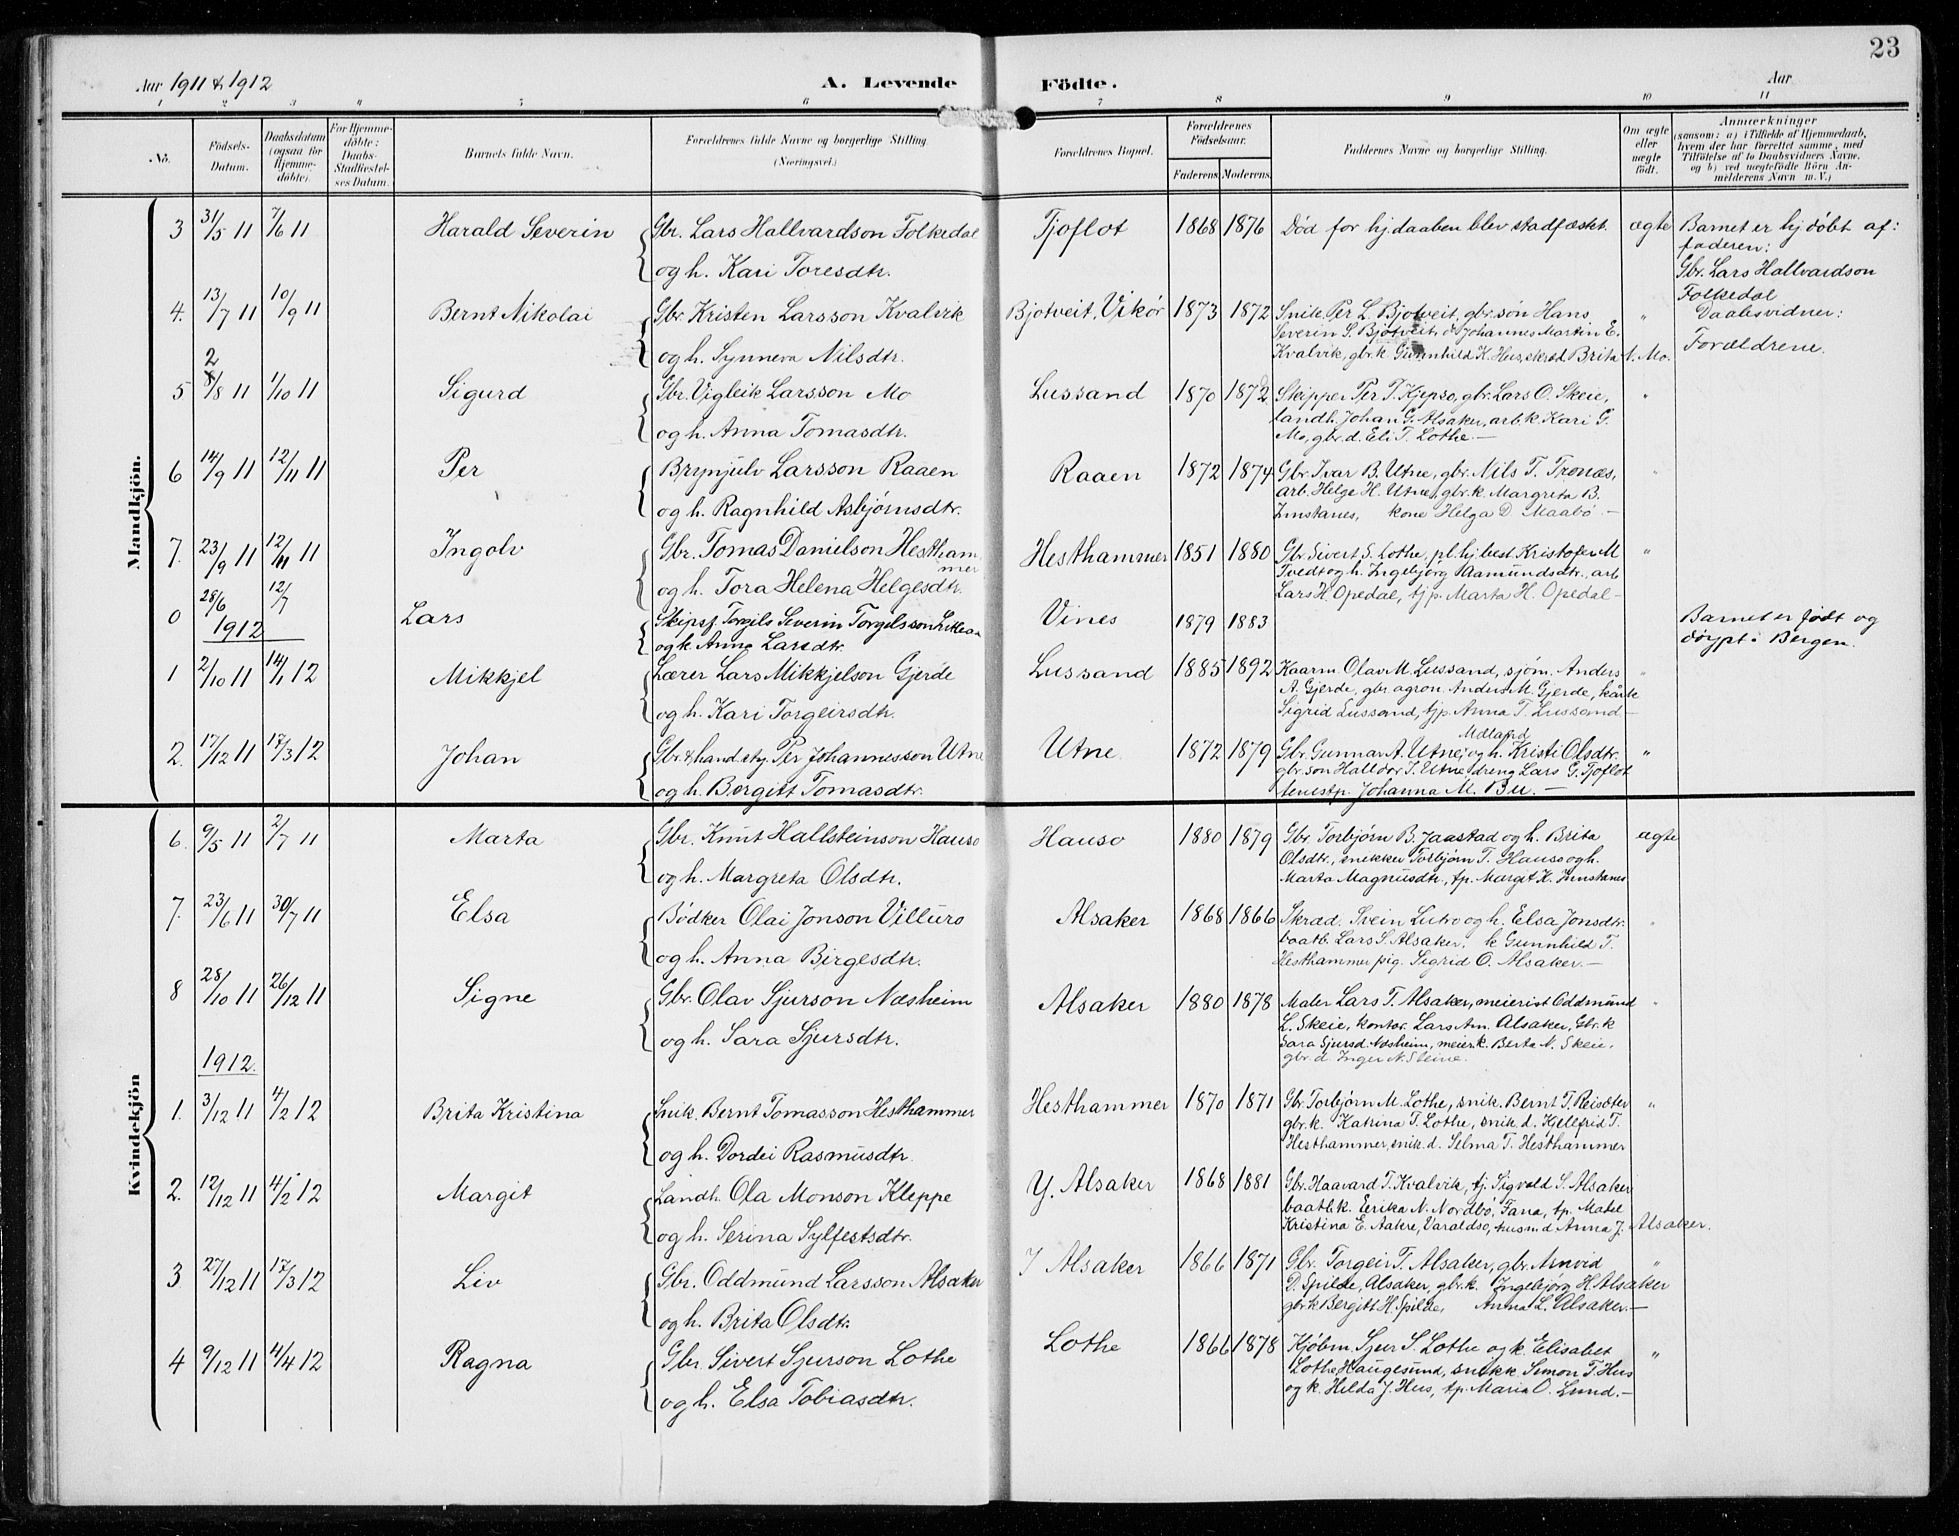 23
Aar 1911 & 1912 A. Levende Födte. Aar
1 2 3 4 5 6 7 8 9 10 11
No. Födsels-Datum. Daabsdatum (ogsaa for Hjemmedöbte). For Hjemmedöbte: Daabs-Stadfæstelses Datum. Barnets fulde Navn. Forældrenes fulde Navne og borgerlige Stilling. (Næringsvei.) Forældrenes Bopæl. Forældrenes Födselsaar. Faderens Moderens Faddernes Navne og borgerlige Stilling. Om ægte eller uægte födt. Anmærkninger (saasom: a) i Tilfælde af Hjemmedaab, hvem der har forrettet samme, med Tilföielse af to Daabsvidners Navne, og b) ved uægtefödte Börn Anmelderens Navn m. V.)
Mandkjön.
3 31/5 11 7/6 11 Harald Severin Gbr. Lars Hallvardson Folkedal Tjoflot 1868 1876 Død for hj.daaben blev stadfæstet. ægte Barnet er hjdøbt af:
og h. Kari Toresdtr. faderen:
Gbr. Lars Hallvardson
Folkedal
4. 13/7 11 10/9 11 Bernt Nikolai Gbr. Kristen Larsson Kvalvik Bjotveit, Vikør 1873 1872 Snik. Per L. Bjotveit, gbr. søn Hans " Daabsvidner:
Severin S. Bjotveit, & Johannes Martin E.
og h. Synneva Nilsdtr. Kvalvik, gbr.k. Gunnhild K. Hus, skræd Brita N. Mo. Forældrene.
5 2/8 11 1/10 11 Sigurd Gbr. Vigleik Larsson Mo Lussand 1870 1872 Skipper Per T. Kjepso, gbr. Lars O. Skeie, "
landh. Johan G. Alsaker, arb.k. Kari G.
og h. Anna Tomasdtr. Mo, gbr. d. Eli T. Lothe.—
6 14/9 11 12/11 11 Per Brynjulv Larsson Raaen Raaen 1872 1874 Gbr. Ivar B. Utne, gbr. Nils T. Tronæs, "
arb. Helge H. Utne, gbr.k. Margreta B.
og h. Ragnhild Asbjørnsdtr. Instanes, kone Helga D Maabø.—
7. 23/9 11 12/11 11 Ingolv Gbr. Tomas Danielson Hestham- Hesthammer 1851 1880 Gbr. Sivert S. Lothe, pl.hj.best. Kristofer M "
mer Tvedt og h. Ingebjörg Aamundsdtr., arb
og h. Tora Helena Helgesdtr. Lars H. Opedal, tj.p. Marta H. Opedal—
0 28/6 12/7 Lars Skipsf. Torgils Severin Torgelsson Vines 1879 1883 Barnet er født og
1912 og k. Anna Larsdtr. døypt i Bergen.
1 2/10 11 14/1 12 Mikkjel Lærer Lars Mikkjelson Gjerde Lussand 1885 1892 Kaarm. Olav M. Lussand, sjöm. Anders "
A. Gjerde, gbr agron. Anders M. Gjerde, kårk
og h. Kari Torgeirsdtr. Sigrid Lussand, tjp. Anna T. Lussand—
2. 17/12 11 17/3 12 Johan Gbr. & hand.sty. Per Johannesson Utne Utne 1872 1879 Gbr. Gunnar A. Utne, og h. Kristi Olsdtr. Midland "
gbr.søn Halldor J. Utne dreng Lars G. Tjoflot
og h. Bergitt Tomasdtr. tenestp. Johanna M. Bu.—
Kvindekjön
6. 9/5 11 2/7 11 Marta Gbr. Knut Hallsteinson Hauso Hauso 1880 1879 Gbr. Torbjørn B. Jaastad og h. Brita ægte
Olsdtr., snekker Torbjørn T. Hauso og h.
og h. Margreta Olsdtr. Marta Magnusdtr, tp. Margit K. Instanes
7. 23/6 11 30/7 11 Elsa Bödker Olai Jonson Villuro Alsaker 1868 1866 Skræd. Svein Lutro og h. Elsa Jonsdtr. "
baatb. Lars S. Alsaker, k Gunnhild T.
og h. Anna Birgesdtr. Hesthammer pig. Sigrid O. Alsaker.—
8 28/10 11 26/12 11 Signe Gbr. Olav Sjurson Næsheim Alsaker 1880 1878 Maler Lars T. Alsaker, meierist Oddmund "
L. Skeie, kontor. Lars Am. Alsaker, Gbr. k
og h. Sara Sjursdtr. Sara Sjursd. Næsheim, meier.k. Berta N. Skeie,
gbr.d. Inger N. Steine.
1912.
1. 3/12 11 4/2 12 Brita Kristina Snik. Bernt Tomasson Hesthammer Hesthammer 1870 1871 Gbr. Torbjørn M. Lothe, snik. Bernt T. Reisæter "
gbr.k. Katrina T. Lothe, snik d. Kjellfrid T.
og h. Dordei Rasmusdtr. Hesthammer, snik. d. Selma T. Hesthammer
2. 12/12 11 4/2 12 Margit Landh. Ola Monson Kleppe Y. Alsaker 1868 1881 Gbr. Haavard T. Kvalvik, tj. Sigvald S. Alsaker "
baatb.k. Erika N. Nordbö, Fana, tp. Matel
og h. Serina Sylfestsdtr. Kristina E. Aakre, Varaldsö, husm.d Anna J. Alsaker.
3 27/12 11 17/3 12 Liv Gbr. Oddmund Larsson Alsaker I Alsaker 1866 1871 Gbr. Torgeir T. Alsaker, gbr. Arnvid "
D. Spilde, Alsaker, gbr.k. Ingebjörg H. Alsaker
og h. Brita Olsdtr. gbr.k Bergitt H. Spilde, Anna L. Alsaker.—
4 9/12 11 4/4 12 Ragna Gbr. Sivert Sjurson Lothe Lothe 1866 1878 Kjöbm. Sjur S. Lothe og k. Elisabet "
Lothe Haugesund, snekk Simon T. Hus
og h. Elsa Tobiasdtr. og k. Hilda J. Hus, tp. Maria O. Lund.—